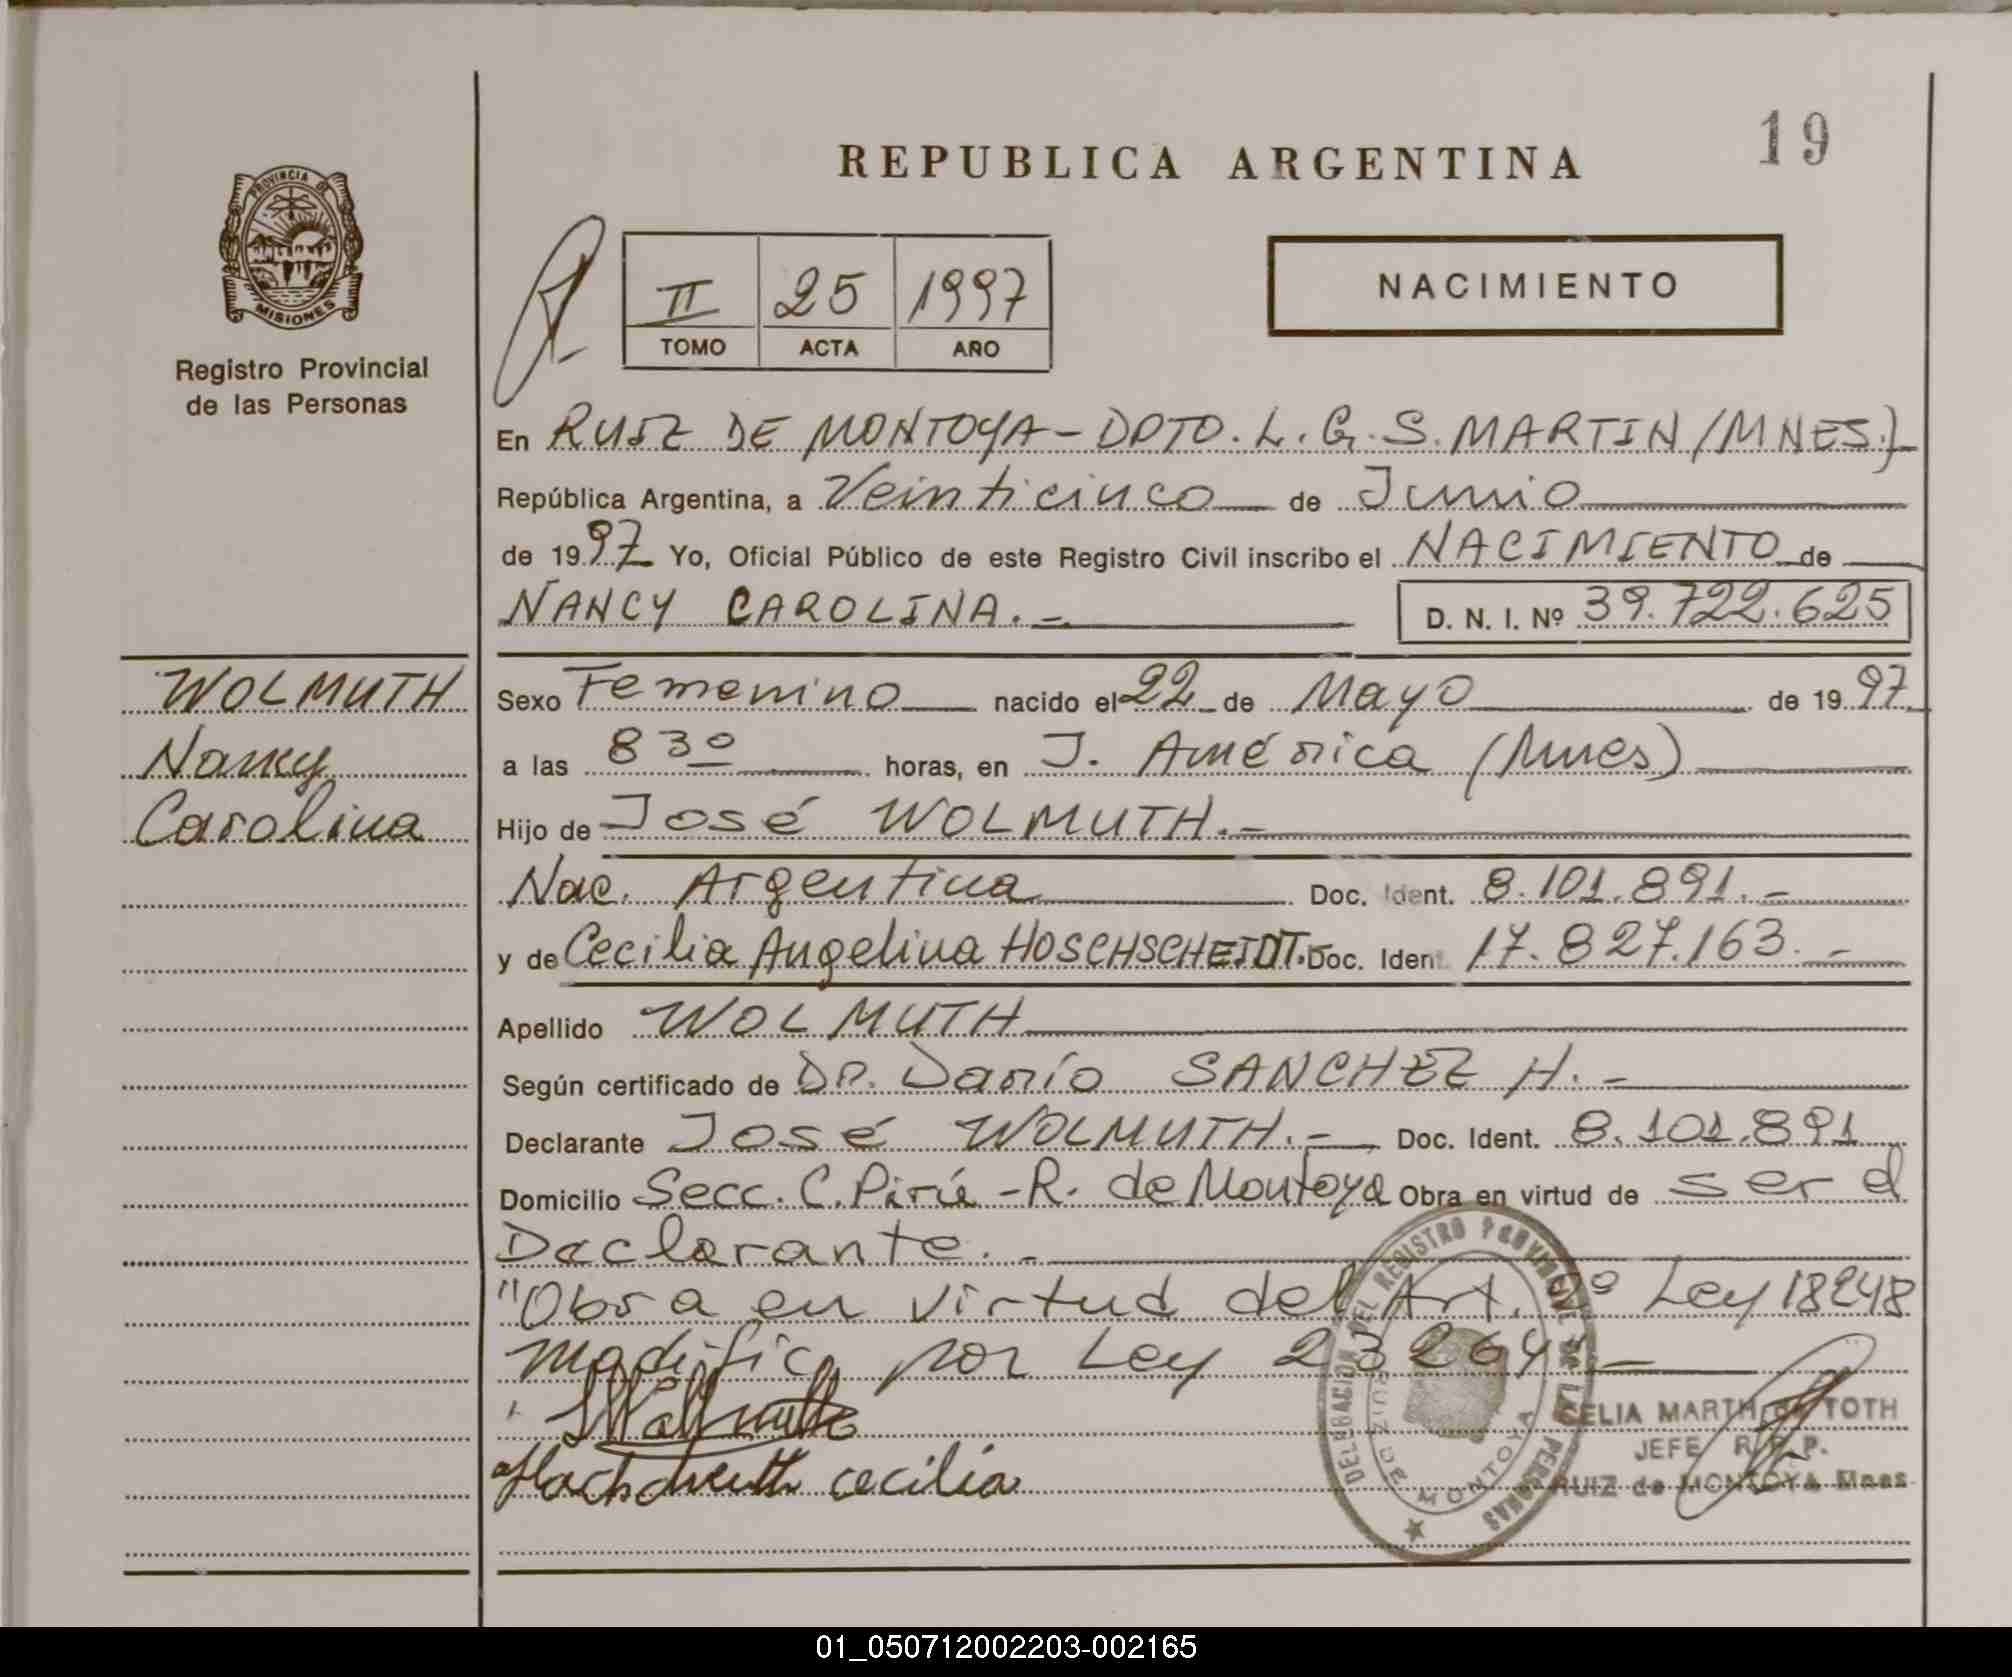 19
REPUBLICA ARGENTINA
PROVINCIA DE
MISIONES
Registro Provincial
de las Personas
II 25 1997
TOMO ACTA AÑO
NACIMIENTO
En RUIZ DE MONTOYA - DPTO. L. G. S. MARTIN (MNES.)-
República Argentina, a Veinticinco de Junio
de 1997 Yo, Oficial Público de este Registro Civil inscribo el NACIMIENTO de
NANCY CAROLINA.- D. N. I. Nº 39.722.625
WOLMUTH
Nancy
Carolina
Sexo Femenino nacido el 22 de Mayo de 1997
a las 8 30 horas, en J. América (Mnes)
Hijo de José WOLMUTH.-
Nac. Argentina Doc. Ident. 8.101.891.-
y de Cecilia Angelina HOSCHSCHEIDT. Doc. Ident. 17.827.163.-
Apellido WOLMUTH
Según certificado de Dr. Darío SANCHEZ H.-
Declarante José WOLMUTH.- Doc. Ident. 8.101.891
Domicilio Secc. C. Pirú - R. de Montoya Obra en virtud de ser el
Declarante.-
"Obra en virtud del Art. Ley 18248
modific por Ley 23264 -
cecilia
DELEGACION DEL REGISTRO PROVINCIAL DE LAS PERSONAS
RUIZ DE MONTOYA
CELIA MARTH de TOTH
JEFE R. P. P.
RUIZ de MONTOYA Mnes
01_050712002203-002165